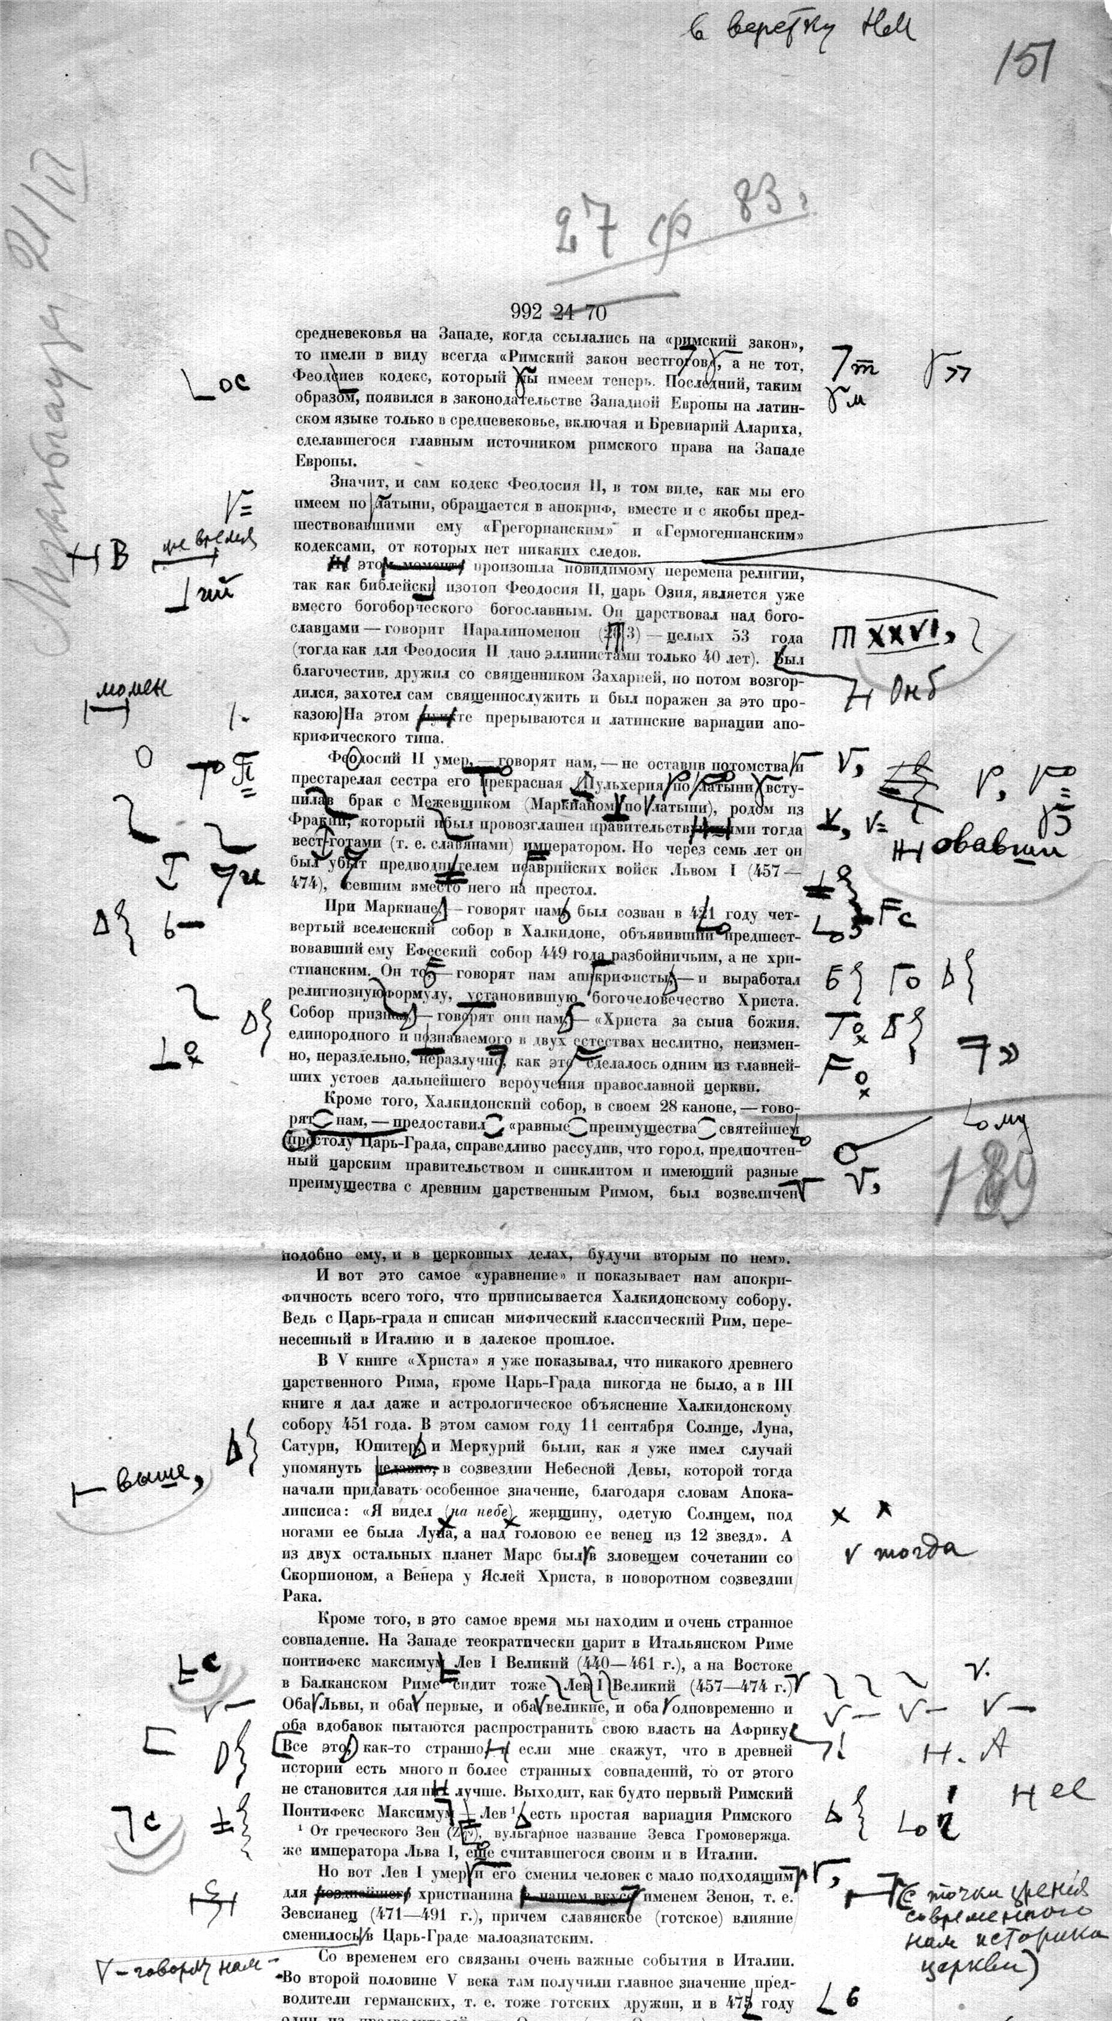 в верстку НМ
151
27 ф 83 г
992 24 70
средневековья на Западе, когда ссылались на «римский закон»,
то имели в виду всегда «Римский закон вестготов», а не тот,
Феодсиев кодекс, который мы имеем теперь. Последний, таким
образом, появился в законодательстве Западной Европы на латин-
ском языке только в средневековье, включая и Бревиарий Алариха,
сделавшегося главным источником римского права на Западе
Европы.
Значит, и сам кодекс Феодосия II, в том виде, как мы его
имеем по латыни, обращается в апокриф, вместе и с якобы пред-
шествовавшими ему «Грегорианским» и «Гермогенианским»
кодексами, от которых нет никаких следов.
этом моменте произошла повидимому перемена религии,
так как библейски изотоп Феодосия II, царь Озия, является уже
вместо богоборческого богославным. Он царствовал над бого-
славцами — говорит Паралипоменон — целых 53 года
(тогда как для Феодосия II дано эллинистами только 40 лет). Был
благочестив, дружил со священником Захарией, но потом возгор-
дился, захотел сам священнослужить и был поражен за это про-
казою На этом пункте прерываются и латинские вариации апо-
крифического типа.
Феодосий II умер, — говорят нам, — не оставив потомства и
престарелая сестра его прекрасная Пульхерия по латыни всту-
пила в брак с Межевщиком (Маркианом по латыни), родом из
Фракии, который был провозглашен правительствующими тогда
вестготами (т. е. славянами) императором. Но через семь лет он
был убит предводителем исаврийских войск Львом I (457—
474), севшим вместо него на престол.
При Маркиане — говорят нам был созван в 421 году чет-
вертый вселенский собор в Халкидоне, объявивший предшест-
вовавший ему Ефесский собор 449 года разбойничьим, а не хри-
стианским. Он то — говорят нам апокрифисты, — и выработал
религиозную формулу, установившую богочеловечество Христа.
Собор признал, — говорят они нам, — «Христа за сына божия.
единородного и познаваемого в двух естествах неслитно, неизмен-
но, нераздельно, неразлучно, как это сделалось одним из главней-
ших устоев дальнейшего вероучения православной церкви.
Кроме того, Халкидонский собор, в своем 28 каноне, — гово-
рят нам, — предоставил «равные преимущества святейшем
престолу Царь-Града, справедливо рассудив, что город, предпочтен-
ный царским правительством и синклитом и имеющий разные
преимущества с древним царственным Римом, был возвеличен
189
подобно ему, и в церковных делах, будучи вторым по нем».
И вот это самое «уравнение» и показывает нам апокри-
фичность всего того, что приписывается Халкидонскому собору.
Ведь с Царь-града и списан мифический классический Рим, пере-
несенный в Италию и в далекое прошлое.
В V книге «Христа» я уже показывал, что никакого древнего
царственного Рима, кроме Царь-Града никогда не было, а в III
книге я дал даже и астрологическое объяснение Халкидонскому
собору 451 года. В этом самом году 11 сентября Солнце, Луна,
Сатурн, Юпитер, и Меркурий были, как я уже имел случай
упомянуть недавно, в созвездии Небесной Девы, которой тогда
выше,
начали придавать особенное значение, благодаря словам Апока-
липсиса: «Я видел (на небе) женщину, одетую Солнцем, под
ногами ее была Луна, а над головою ее венец из 12 звезд». А
из двух остальных планет Марс был в зловещем сочетании со
тогда
Скорпионом, а Венера у Яслей Христа, в поворотном созвездии
Рака.
Кроме того, в это самое время мы находим и очень странное
совпадение. На Западе теократически царит в Итальянском Риме
понтифекс максимум Лев I Великий (440—461 г.), а на Востоке
в Балканском Риме сидит тоже Лев I Великий (457—474 г.)
Оба Львы, и оба первые, и оба великие, и оба одновременно и
оба вдобавок пытаются распространить свою власть на Африку
Все это, как-то странно если мне скажут, что в древней
истории есть много и более странных совпадений, то от этого
не становится для них лучше. Выходит, как будто первый Римский
Понтифекс Максимум Лев ¹ есть простая вариация Римского
¹ От греческого Зен (Ζην), вульгарное название Зевса Громовержца.
же императора Льва I, еще считавшегося своим и в Италии.
Но вот Лев I умер и его сменил человек с мало подходящим
для позднейшего христианина в нашем вкусе именем Зенон, т. е.
(с точки зрения
современного
нам историка
церкви)
Зевсианец (471—491 г.), причем славянское (готское) влияние
сменилось в Царь-Граде малоазиатским.
– говорят нам –
Со временем его связаны очень важные события в Италии.
Во второй половине V века там получили главное значение пред-
водители германских, т. е. тоже готских дружин, и в 475 году